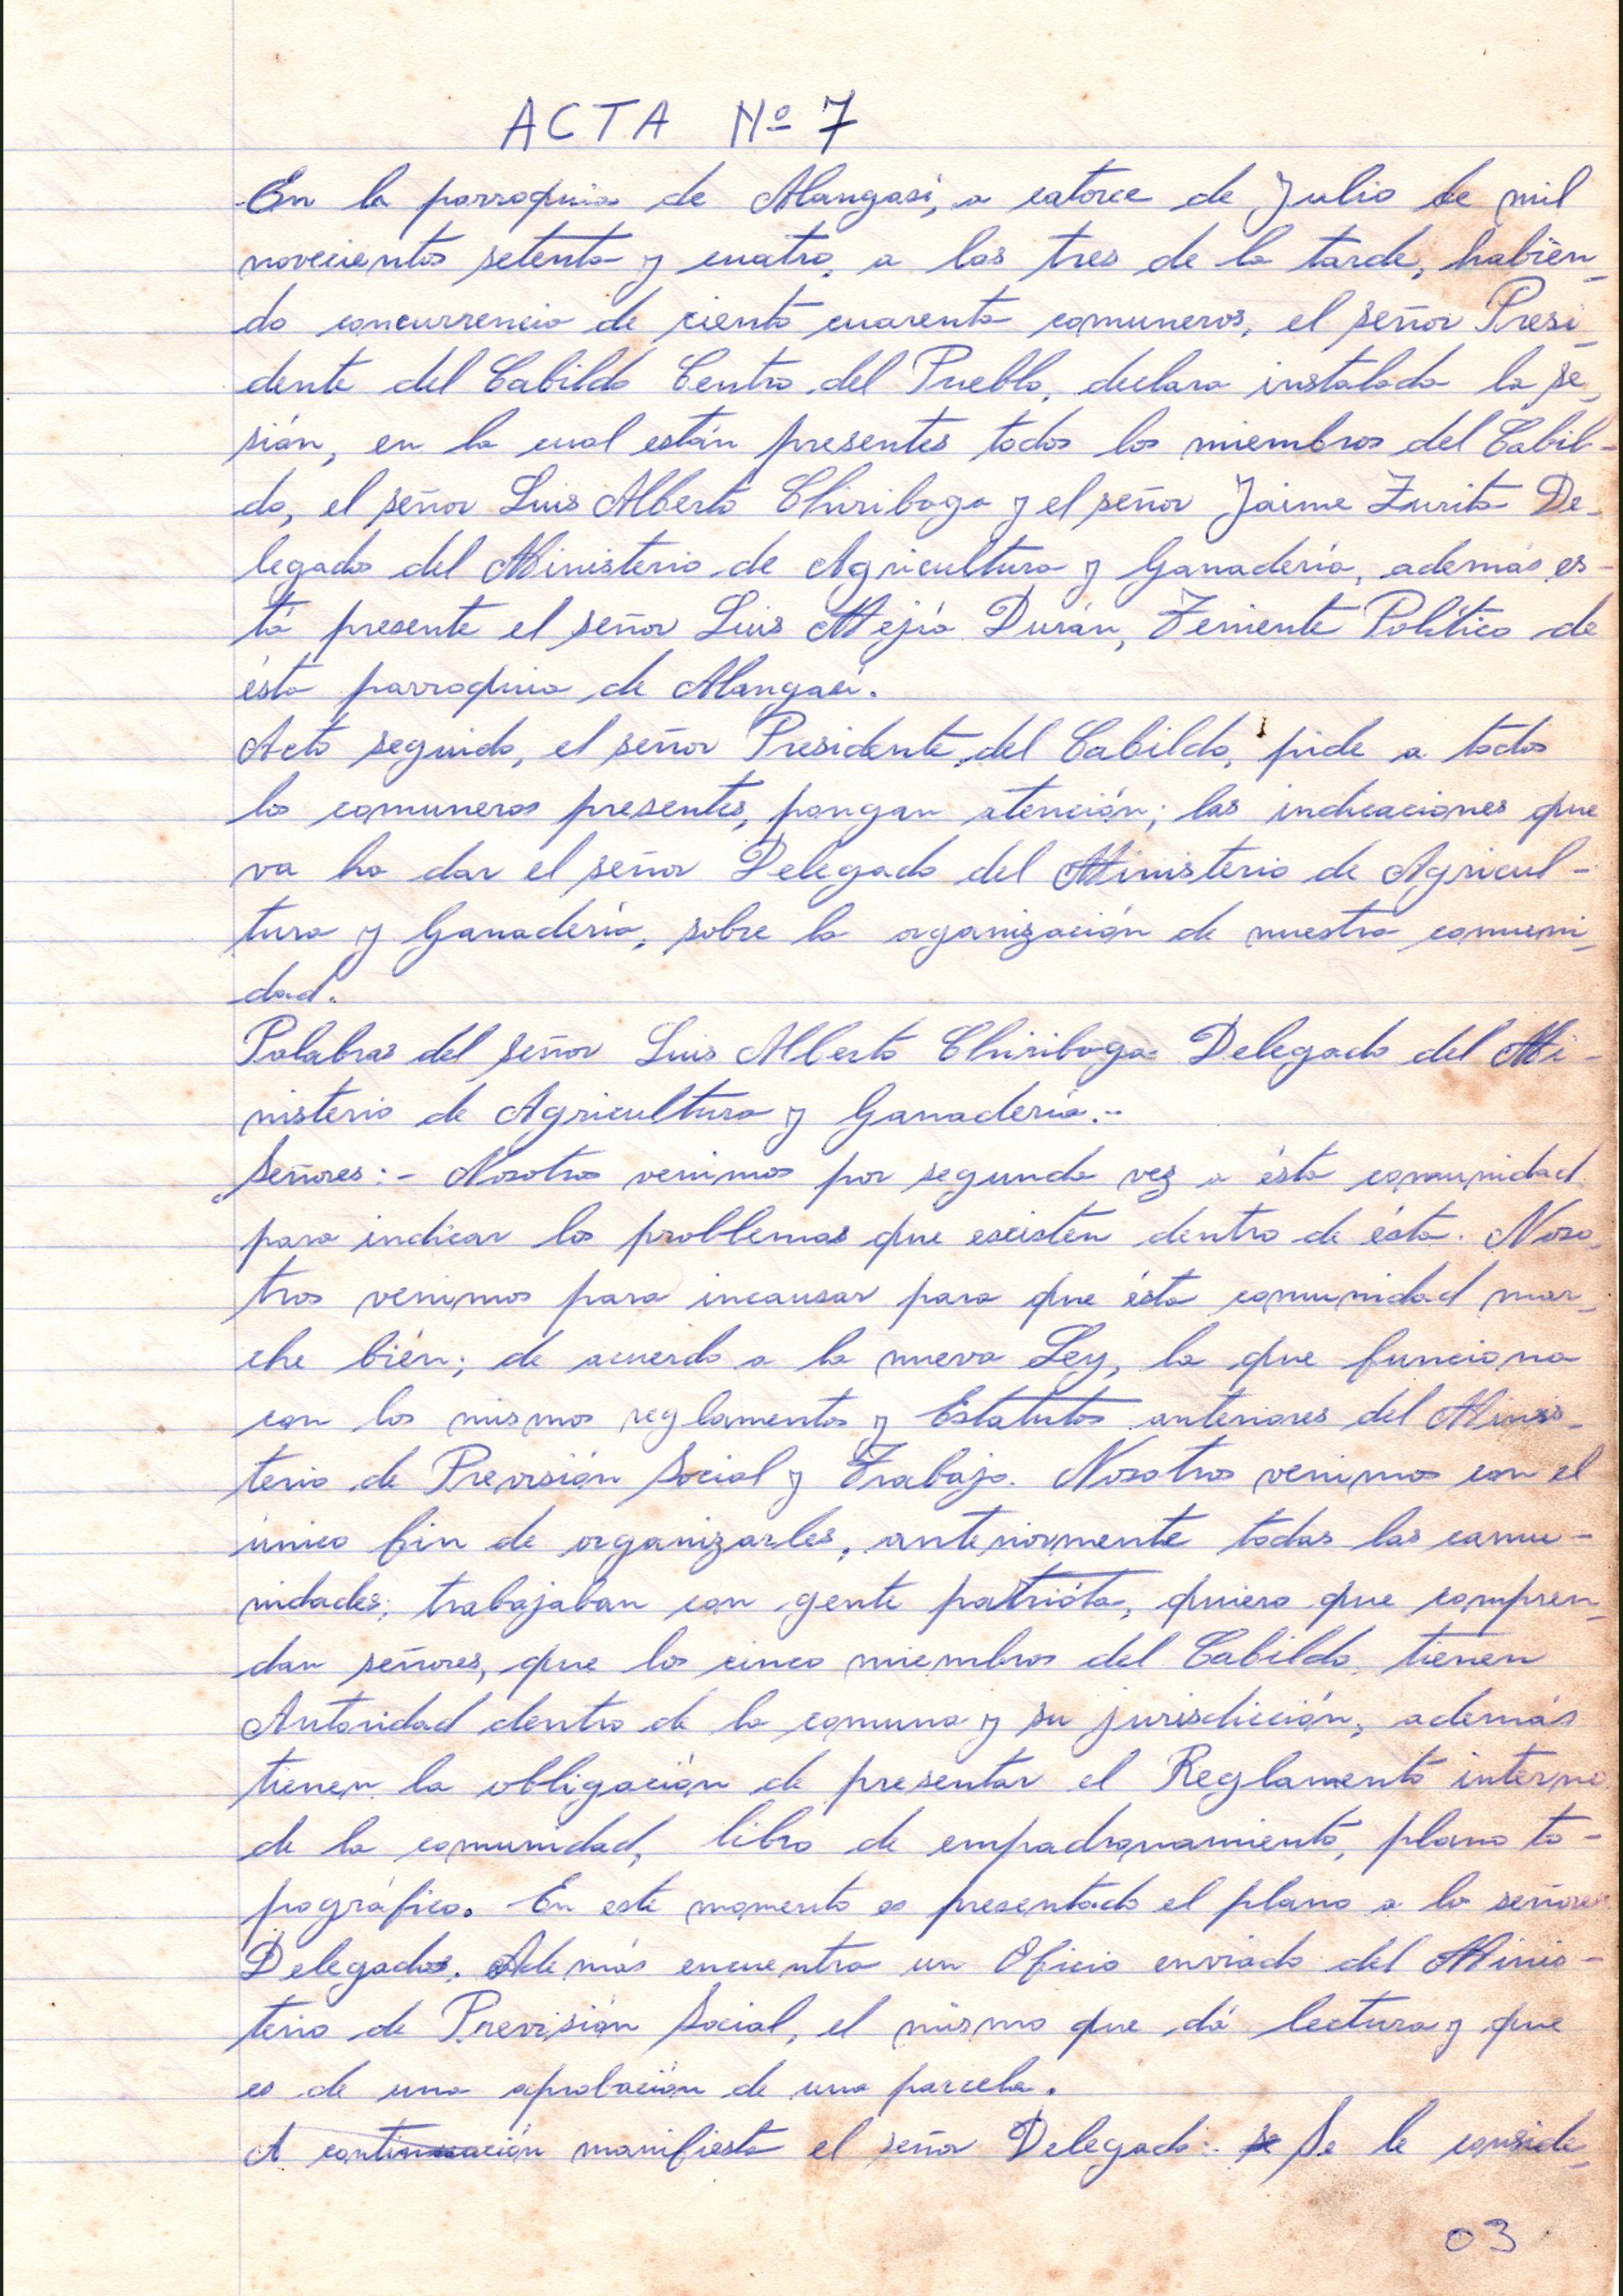 ACTA Nº 7
En la parroquia de Alangasí, a catorce de Julio de mil
novecientos setenta y cuatro, a las tres de la tarde, habién_
do concurrencia de ciento cuarenta comuneros, el señor Presi_
dente del Cabildo Centro del Pueblo, declara instalada la se_
sión, en la cual están presentes todos los miembros del Cabil-
do, el señor Luis Alberto Chiriboga y el señor Jaime Zurita De_
legado del Ministerio de Agricultura y Ganadería, además es-
tá presente el señor Luis Mejía Durán, Teniente Político de
ésta parroquia de Alangasí.
Acto seguido, el señor Presidente del Cabildo, pide a todos
los comuneros presentes, pongan atención; las indicaciones que
va ha dar el señor Delegado del Ministerio de Agricul-
tura y Ganadería, sobre la organización de nuestra comuni_
dad.
Palabras del señor Luis Alberto Chiriboga Delegado del Mi-
nisterio de Agricultura y Ganadería.-
Señores:- Nosotros venimos por segunda vez a ésta comunidad
para indicar los problemas que existen dentro de ésta. Noso_
tros venimos para incausar para que ésta comunidad mar_
che bién; de acuerdo a la nueva Ley, la que funciona
con los mismos reglamentos y Estatutos anteriores del Minis_
terio de Previsión Social y Trabajo. Nosotros venimos con el
único fin de organizarles, anteriormente todas las comu-
nidades, trabajaban con gente patrióta, quiero que compren_
dan señores, que los cinco miembros del Cabildo, tienen
Autoridad dentro de la comuna y su jurisdicción, además
tienen la obligación de presentar el Reglamento interno
de la comunidad, libro de empadronamiento, plano to-
pográfico. En este momento es presentado el plano a lo señores
Delegados. Además encuentra un Oficio enviado del Minis-
terio de Previsión Social, el mismo que dá lectura y que
es de una aprobación de una parcela.
A continuación manifiesta el señor Delegado:. se Se le conside_
03